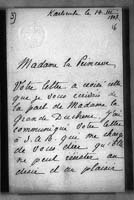 3)
Karlsruhe le 14. III.
1903.
Madame la Princesse
Votre lettre a croisé celle
que je vous écrivais de
la part de Madame la
Grande Duchesse. J'ai
communiqué votre lettre
à S. A. R. qui me charge
de vous dire qu'Elle
ne peut consentir au
désir et au plaisir